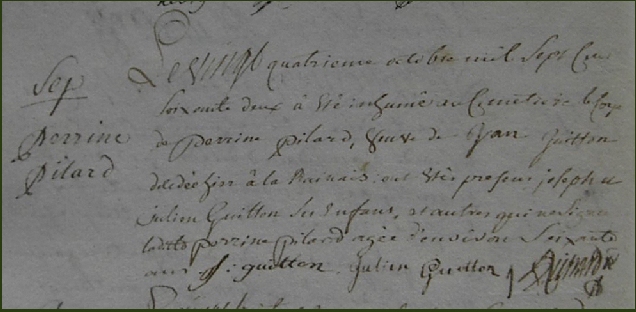 Sep
Perrine
Pilard
Le vingt quatrieme octobre mil Sept Cen
soixante deux à été inhumé au Cimetiere le Corp
de perrine pilard, veuve de Jan Guitton
decédée hier à la ont été presens joseph et
julien Guitton Ses Enfans, et autres qui ne signe
ladite perrine pilard agée d'environ Soixante
ans J: guitton julien Guitton